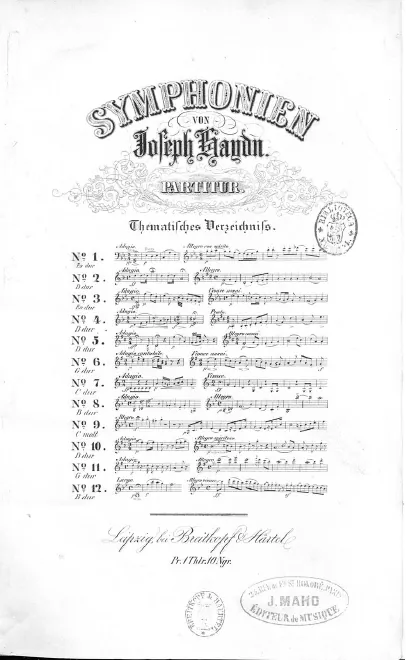 SYMPHONIEN
VON
Joseph Haydn.
PARTITUR.
Thematisches Verzeichniss.
Nº 1. Adagio. Allegro con spirito.
Es dur
Nº 2. Adagio. Allegro.
Nº 3. Adagio. Vivace assai.
Es dur
Nº 4. Adagio. Presto.
D dur
Nº 5. Adagio. Allegro assai.
D dur
Nº 6. Adagio cantabile. Vivace assai.
G dur
Nº 7. Adagio. Vivace.
C dur
Nº 8. Adagio. Allegro.
B dur
Nº 9. Allegro.
C moll
Nº 10. Adagio.
D dur
Nº 11. Adagio. Allegro.
G dur
Nº 12. Largo. Allegro vivace.
B dur
Leipzig, bei Breitkopf & Härtel
Pr. 1 Thlr. 10 Ngr.
J. MAHO
EDITEUR de MUSIQUE
BREITKOPF & HAERTEL